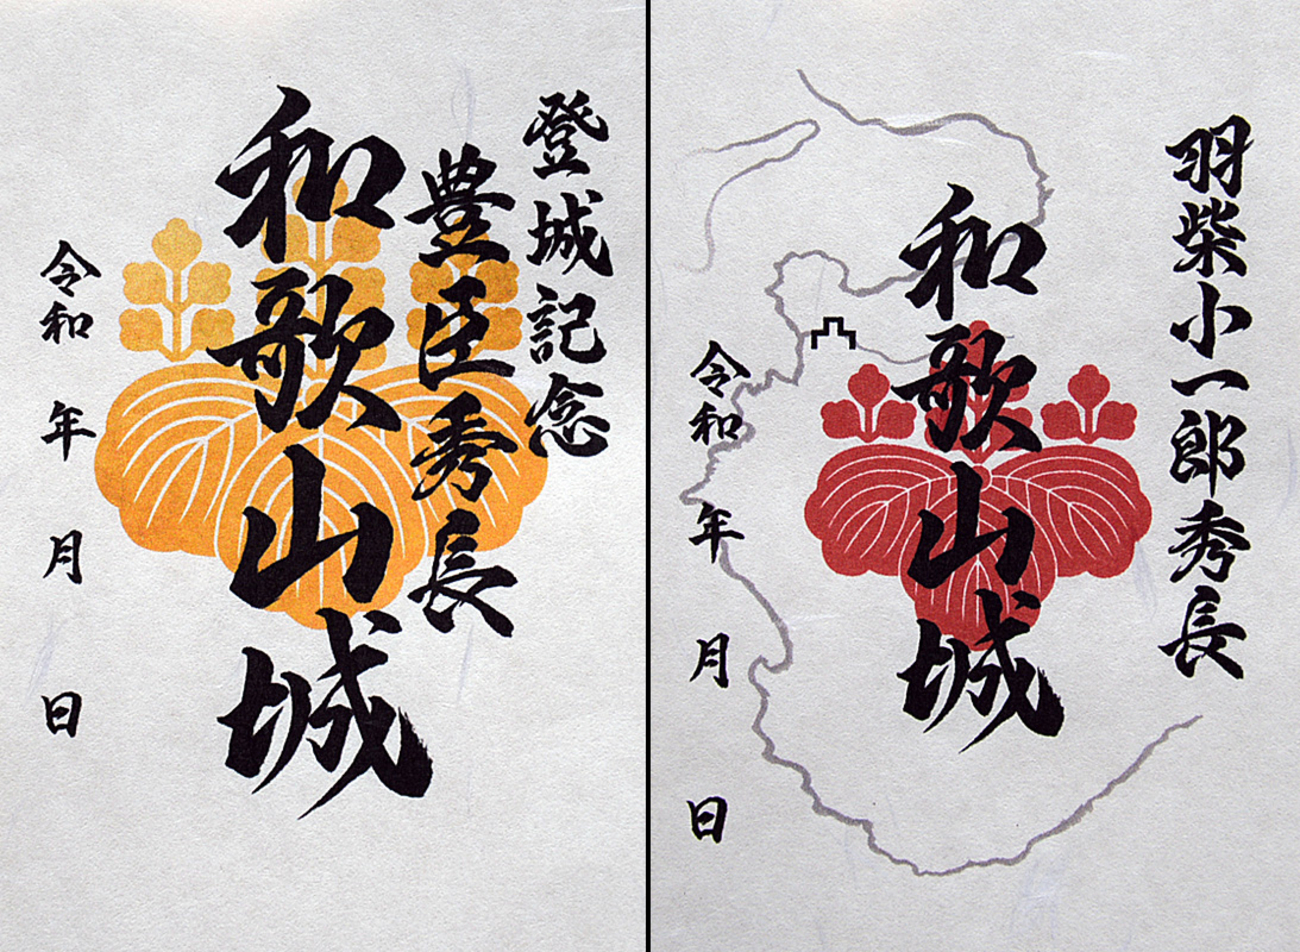 登城記念
豊臣秀長
和歌山城
令和 年 月 日
羽柴小一郎秀長
和歌山城
令和 年 月 日